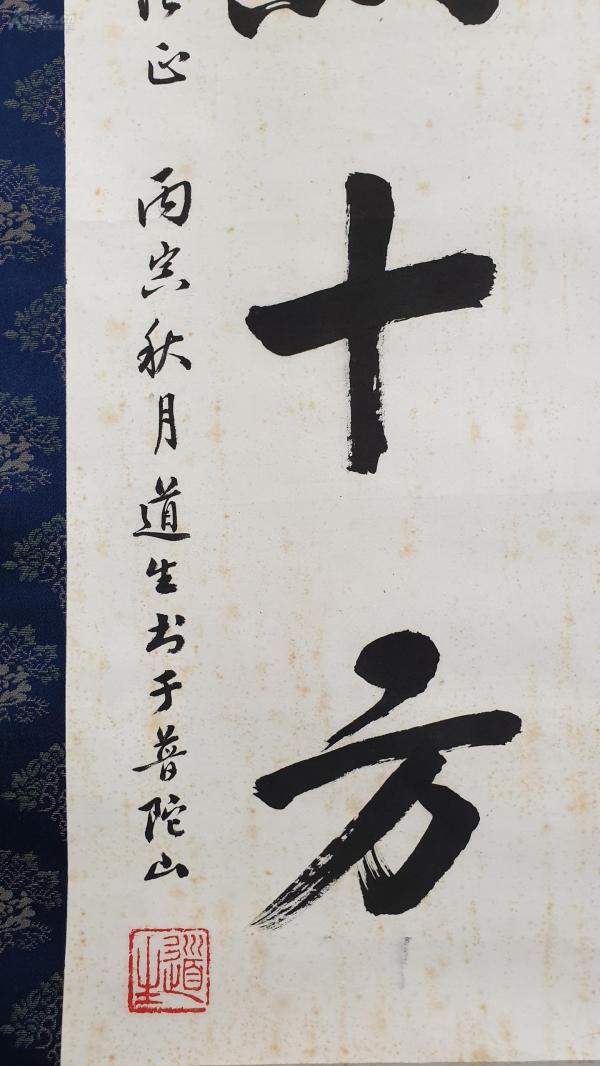 十方
正 丙寅秋月道生书于普陀山
道生